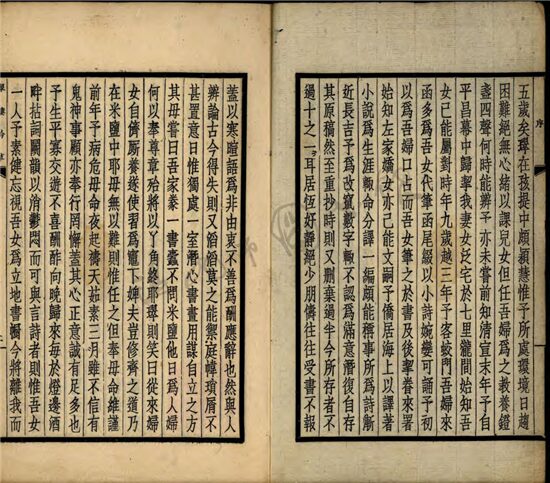 序
五歲矣琸在孩提中頗穎慧惟予所處環境日趨
困難絕無心緒以課兒女但任吾婦爲之教養鐙
盞四聲何時能辨予亦未嘗前知清宣末年予自
平昌幕中歸挈我妻女泛宅于七里瀧間始知吾
女已能屬對時年九歲越三年予客蛟門吾婦來
函多爲吾女代筆函尾綴以小詩婉孌可誦予初
以爲吾婦口占而吾女筆之於書及後挈眷來署
始知左家嬌女亦已能文嗣予僑居海上以譯著
小說爲生涯輒命分譯一編頗能稱事所爲詩漸
近長吉予爲改竄數字輒不認爲滿意潛復自存
其原稿然至重抄時則又刪棄過半今所存者不
過十之一耳居恆好靜絕少朋儔往往受書不報
蓋以寒暄語爲非由衷不善爲酬應辭也然與人
辨論古今得失則又滔滔莫之能禦庭幃瑣屑不
甚置意日惟獨處一室潛心書畫用謀自立之方
其母嘗曰吾家豢一書蠹不問米鹽他日爲人婦
何以奉尊章殆將以丫角終耶琸則笑曰從來婦
女自儕厮養遂使習爲竈下婢夫豈修齊之道乃
在米鹽中耶母無以難則惟任之但奉母命維謹
前年予病危母命夜起禱天茹素三月雖不信有
鬼神事願亦奉行罔懈蓋其心正意誠有足多也
予生平寡交遊不喜酬酢向晚歸來每於燈邊酒
畔拈詞鬬韻以消鬱悶而可與言詩者則惟吾女
一人予素健忘視吾女爲立地書櫥今將離我而